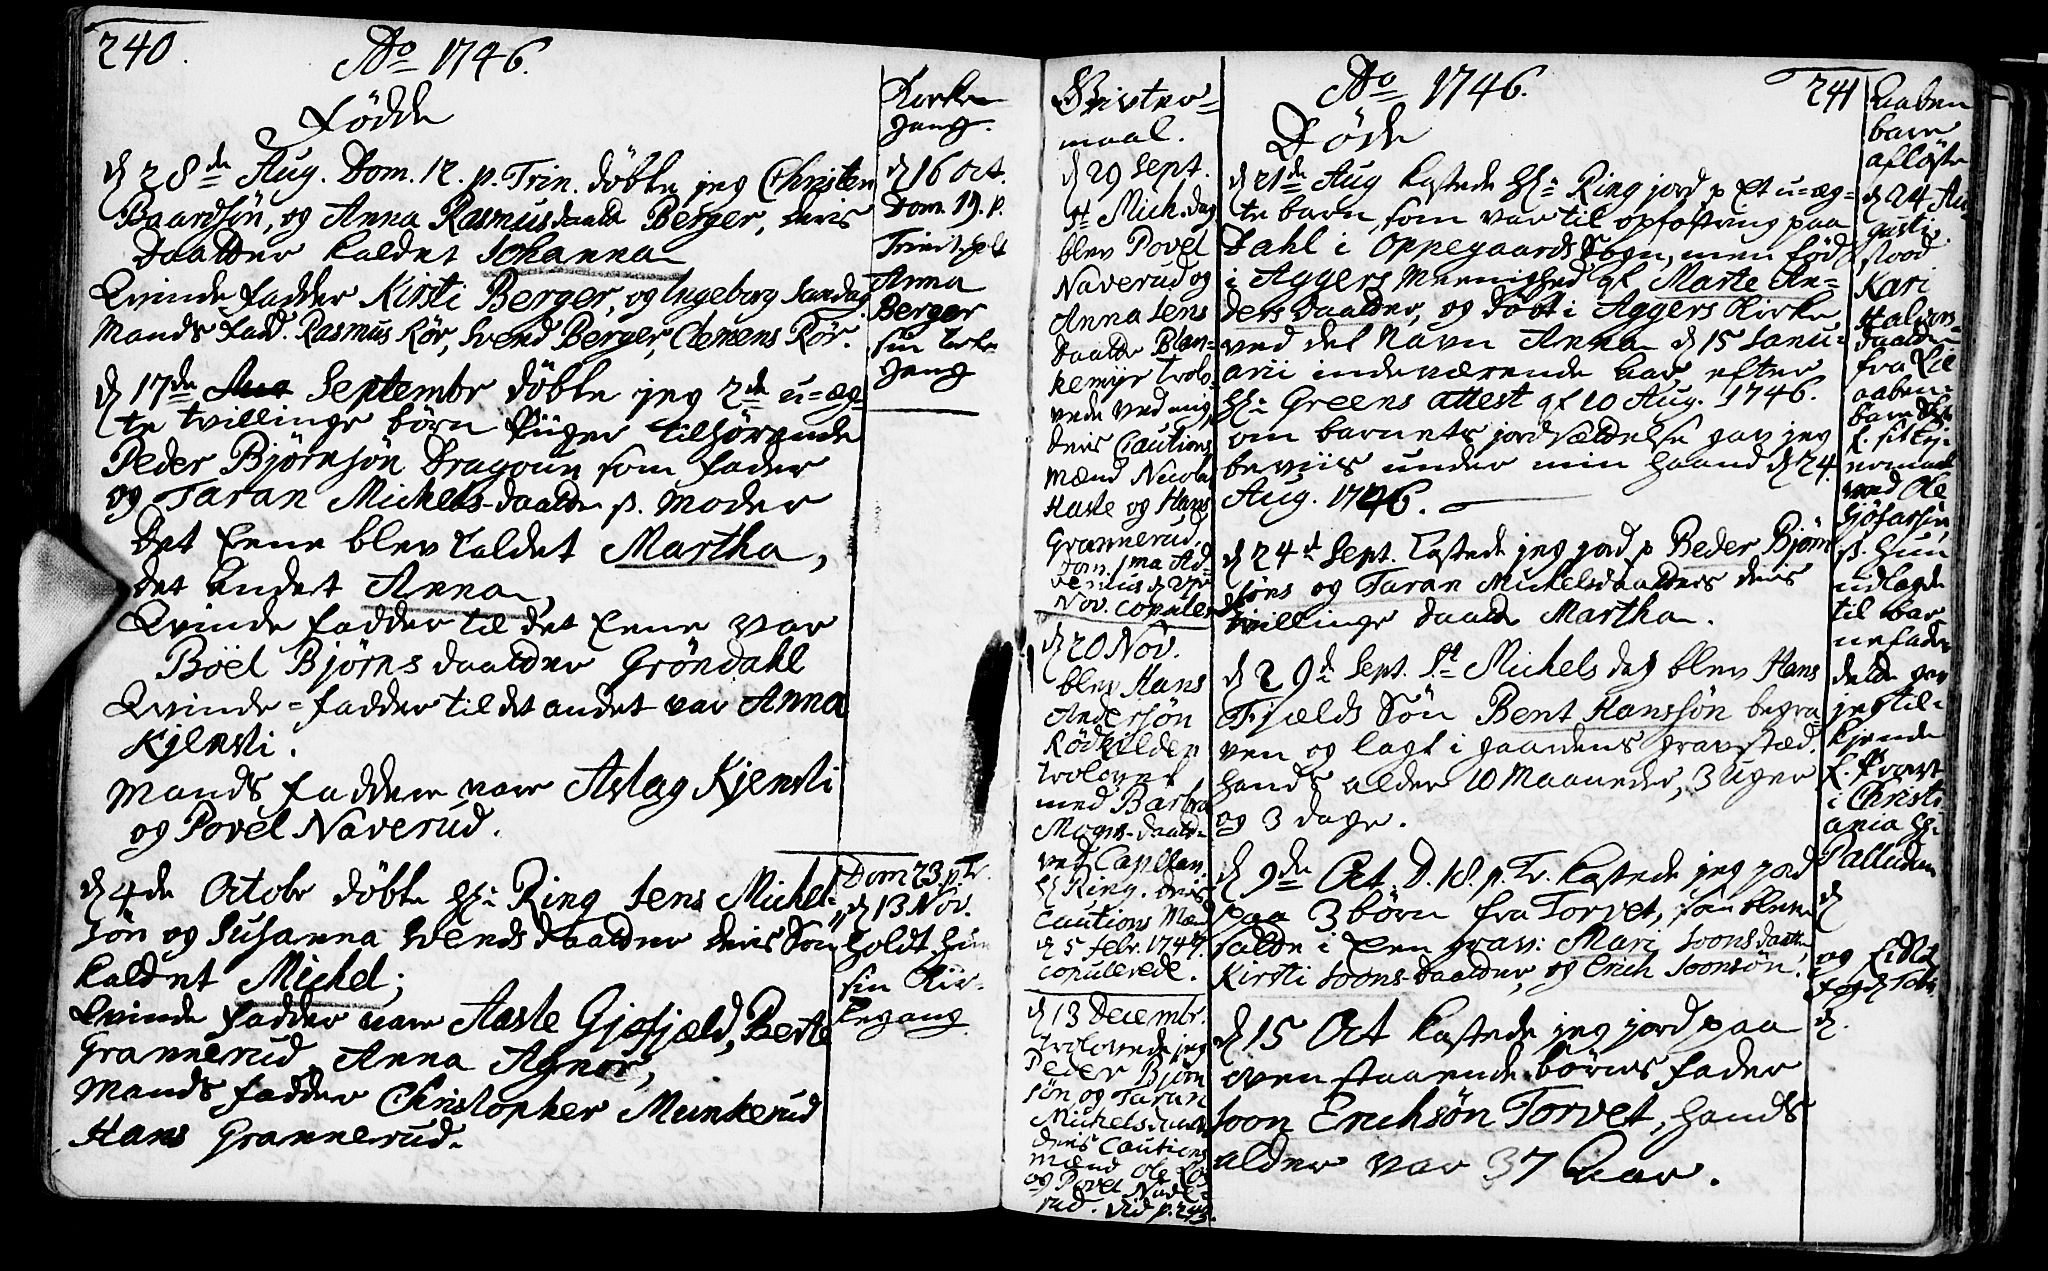 240.
Ao 1746.
Födde
d 28de Aug. Dom. 12. p. Trin. döbte jeg Christen
Baardsön, og Anna Rasmusdaatter Berger, deris
Daatter kaldet Johanna
Qvinde fadder Kirsti Berger, og Ingeborg Sandag
Mands fad. Rasmus Rör, Svend Berger, Clemens Rör.
d 17de Septembr döbte jeg 2de u-æg-
te tvillinge börn Piiger tilhörende
Peder Björnsön Dragoun som fader
og Taran Michels-daatter s. Moder
Det Eene blev kaldet Martha,
det andet Anna,
Qvinde fadder til det Eene var
Böel Björns daatter Gröndahl
Qvinde-fadder til det andet var Anna
Kjensti.
Mands faddere vare Aslag Kjensti
og Povel Naverud.
d 4de Octobr döbte Hr. Ring Jens Michel-
sön og Susanna Svends daatter deris Sön
kaldet Michel;
Qvinde fadder vare Aaste Gjefjeld, Berte
Grannerud, Anna Agnor,
Mands fadder Christopher Munkerud
Hans Grannerud.
Kirke
gang.
d 16 Oct.
Dom. 19. p.
Trinit. holt
Anna
Berger
sin kirke
gang
Dom 23 p Tr.
d 13 Nov.
holdt hun
sin Kir-
kegang
Givter-
maal.
d 29 Sept.
St Mich. dag
blev Povel
Naverud og
Anna Jens
daatter Blan-
kemyr trolo-
vede ved mig,
deris Cautions
Mænd Nicola
Haste og Hans
Grannerud.
Dom. 1ma Ad-
ventus d 27
Nov. copuler
d 20 Nov.
blev Hans
Andersön
Rödkilden
trolovet
med Barbra
Mogns-daatter
ved Capellan
Hr Ring. deris
Cautions Mæn
d 5 febr. 1747.
copulerede.
d 13 Decembr.
trolovede jeg
Peder Björn
sön og Taran
Michelsdaatter
deris Cautions
mænd Ole
og Povel Nave-
rud. vid p. 243.
Ao 1746.
241
Döde
d 21de Aug kastede Hr. Ring jord p Et u-æg-
te barn, som var til opfostring paa
Dahl i Oppegaards Sogn, men föd
i Aggers Meenighed af Marte An-
ders daatter, og döbt i Aggers Kirke
ved det Navn Anna d 15 Janu-
arii indeværende aar efter
Hr. Greens attest af 10 Aug. 1746.
om barnets jordfældelse gav jeg
beviis under min haand d 24.
Aug. 1746.
d 24d Sept. kastede jeg jord p Peder Björn
söns og Taran Michelsdaatters deris
tvillinge daatter Martha.
d 29d Sept. St Michels dag blev Hans
Fjælds Sön Bent Hanssön begra
ven og lagt i gaardens gravstæd.
hands alder 10 Maaneder, 3 uger
og 3 dage.
d 9de Oct. D. 18. p. Tr. kastede jeg jord
paa 3 börn fra Torvet, som bleve
satte i Een grav: Mari Joons daatter,
Kirsti Joons-daatter, og Erich Joonsön.
d 15 Oct kastede jeg jord paa
ovenstaaende börns fader
Joon Erichsön Torvet, hands
alder var 37 Aar.
Aaben
bare
afløste
d 24 Au-
gusti
stood
Kari
Halvors-
daatter
fra Lie
aaben-
bare Skr.
f. sit lej-
ermaal
med Ole
s. hun
udlagde
til bar-
nefader
dette gav
jeg til-
kjende
f. Provst
i Christi
ania Hr.
Palludan
d